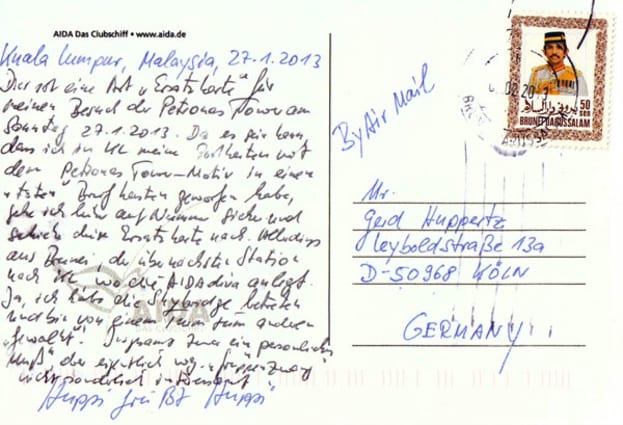 AIDA Das Clubschiff • www.aida.de
Kuala Lumpur, Malaysia, 27.1.2013
Dies ist eine Art "Ersatzkarte" für
meinen Besuch der Petronas Tower am
Sonntag 27.1.2013. Da es sein kann,
dass ich in KL meine Postkarten mit
dem Petronas Tower-Motiv in einen
"toten" Briefkasten geworfen habe,
gehe ich hier auf Nummer Sicher und
schicke diese Ersatzkarte nach. Allerdings
aus Brunei, die übernächste Station
nach KL wo die AIDAdiva anlegt.
Ja, ich habe die Skybridge betreten
und bin von einem Turm zum anderen
"gewalkt". Insgesamt zwar ein persönliches
"Muß" der eigentlich
nicht sonderlich interessant
Huppi grüßt Huppi
AIDA
DAS CLUBSCHIFF
By Air Mail
50
SEN
BRUNEI DARUSSALAM
Mr.
Gerd Huppertz
Leyboldstraße 13a
D-50968 KÖLN
GERMANY